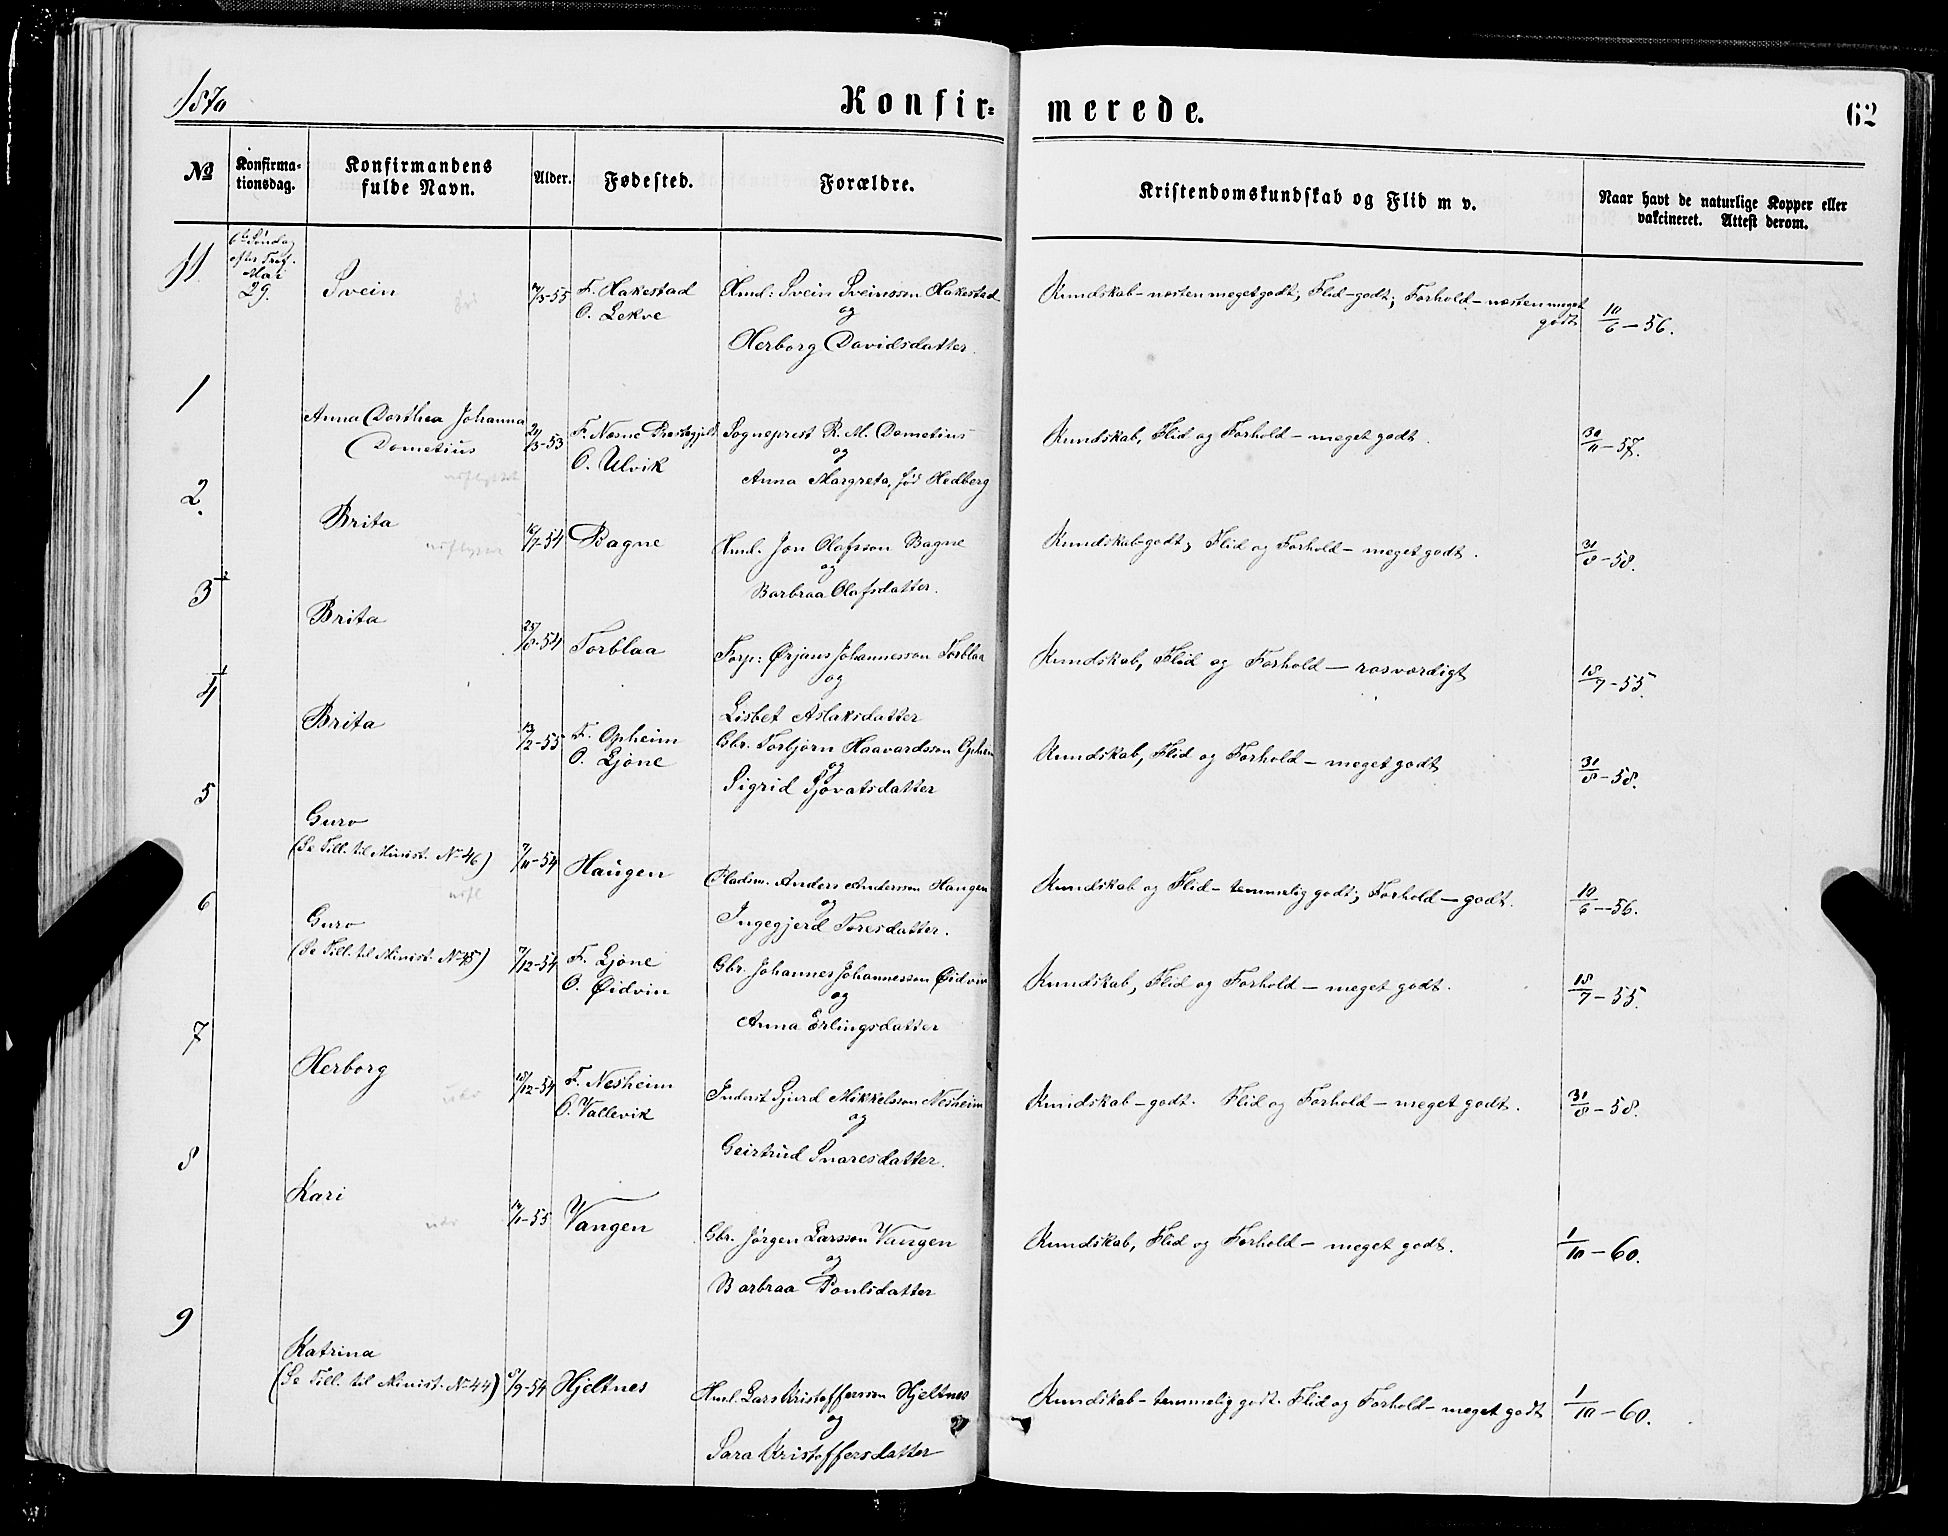 1870
Konfir=
merede.
62
No
Konfirma-
tionsdag.
Konfirmandens
fulde Navn.
Alder.
Fødested.
Forældre.
Kristendomskundskab og Flid m v.
Naar havt de naturlige Kopper eller
vakcineret. Attest derom.
11
6te Søndag
efter Tref.
Mai
29.
Svein
7/3-55
F. Hakestad
O. Lekve
Hmd: Svein Sveinsson Hakestad
og
Herborg Davidsdatter.
Kundskab-næsten meget godt; Flid-godt; Forhold-næsten meget
godt
10/6-56.
1
Anna Dorthea Johanna
Dometius
F. Næsne Præstegjeld
O. Ulvik
Sogneprest R. M. Dometius
og
Anna Margreta, fød Hedberg
Kundskab, Flid og Forhold - meget godt.
30/11-57.
2.
Brita
16/7-54
Bagne
Hmd. Jon Olafsson Bagne
og
Barbraa Olafsdatter.
Kundskab-godt; Flid og Forhold - meget godt.
31/8-58.
3
Brita
25/8-54
Torblaa
Forp: Ørjans Johannesson Torblaa
og
Lisbet Aslaksdatter
Kundskab, Flid og Forhold - rosværdigt
18/7-55.
4
Brita
13/2-55
F. Opheim
O. Ljone
Gbr. Torbjørn Haavardsson Opheim
og
Sigrid Sjovatsdatter
Kundskab, Flid og Forhold - meget godt
31/8-58.
5
Guro
(Se Till. til Minist. No 46)
7/11-54
Haugen
Pladsm. Anders Andersson Haugen
og
Ingegjerd Toresdatter.
Kundskab og Flid - temmelig godt; Forhold - godt.
10/6-56.
6
Guro
(Se Till. til Minist. No 45)
7/12-54
F. Ljone
O. Øidvin
Gbr. Johannes Johannesson Øidvin
og
Anna Erlingsdatter
Kundskab, Flid og Forhold - meget godt.
18/7-55.
7
Herborg
18/12-54
F. Nesheim
O. Vallevik
Inderst Sjurd Mikkelsson Nesheim
og
Geirtrud Snaresdatter.
Kundskab-godt. Flid og Forhold - meget godt.
31/8-58.
8
Kari
Vangen
Gbr. Jørgen Larsson Vangen
og
Barbraa Poulsdatter
Kundskab, Flid og Forhold - meget godt.
1/10-60.
9
Katrina
(Se Till. til Minist. No 44)
8/9-54
Hjeltnes
Hmd. Lars Kristoffersson Hjeltnes
og
Sara Kristoffersdatter
Kundskab - temmelig godt. Flid og Forhold - meget godt
1/10-60.